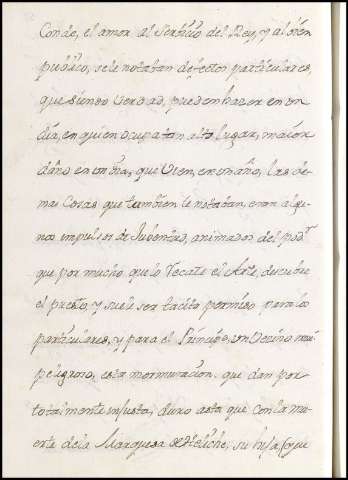 Conde, el amor al servicio del Rey, y al bien
publico, se le notaban defectos particulares,
que siendo verdad, pueden hazer en un
dia, en quien ocupa tan alto lugar, maior
daño en un dia, que bien, en un año, las de
mas cosas que tambien le notaban, eran algu
nos impulsos de Jubentud, animados del pod.r
que por mucho que lo recate el Arte, descubre
el presto, y suele ser tacito permiso para los
particulares, y para el Principe, un vecino mui
peligroso, esta mormuracion que dan por
totalmente injusta, duro asta que con la mu
erte de la Marquesa de Heliche, su hija, (que